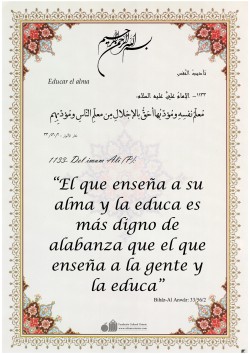 بسم الله الرحمن الرحيم
تأديب النفس
Educar el alma
١١٣٣- الإمامُ عليٌّ عليه السلام:
مُعَلِّمُ نَفْسِهِ ومُؤَدِّبُها أحَقُّ بِالإجْلالِ مِن مُعَلِّمِ النّاسِ ومُؤَدِّبِهِم
1133- Del imam Ali (P):
“El que enseña a su
alma y la educa es
más digno de
alabanza que el que
enseña a la gente y
la educa”
Bihâr-Al Anwâr: 33/56/2